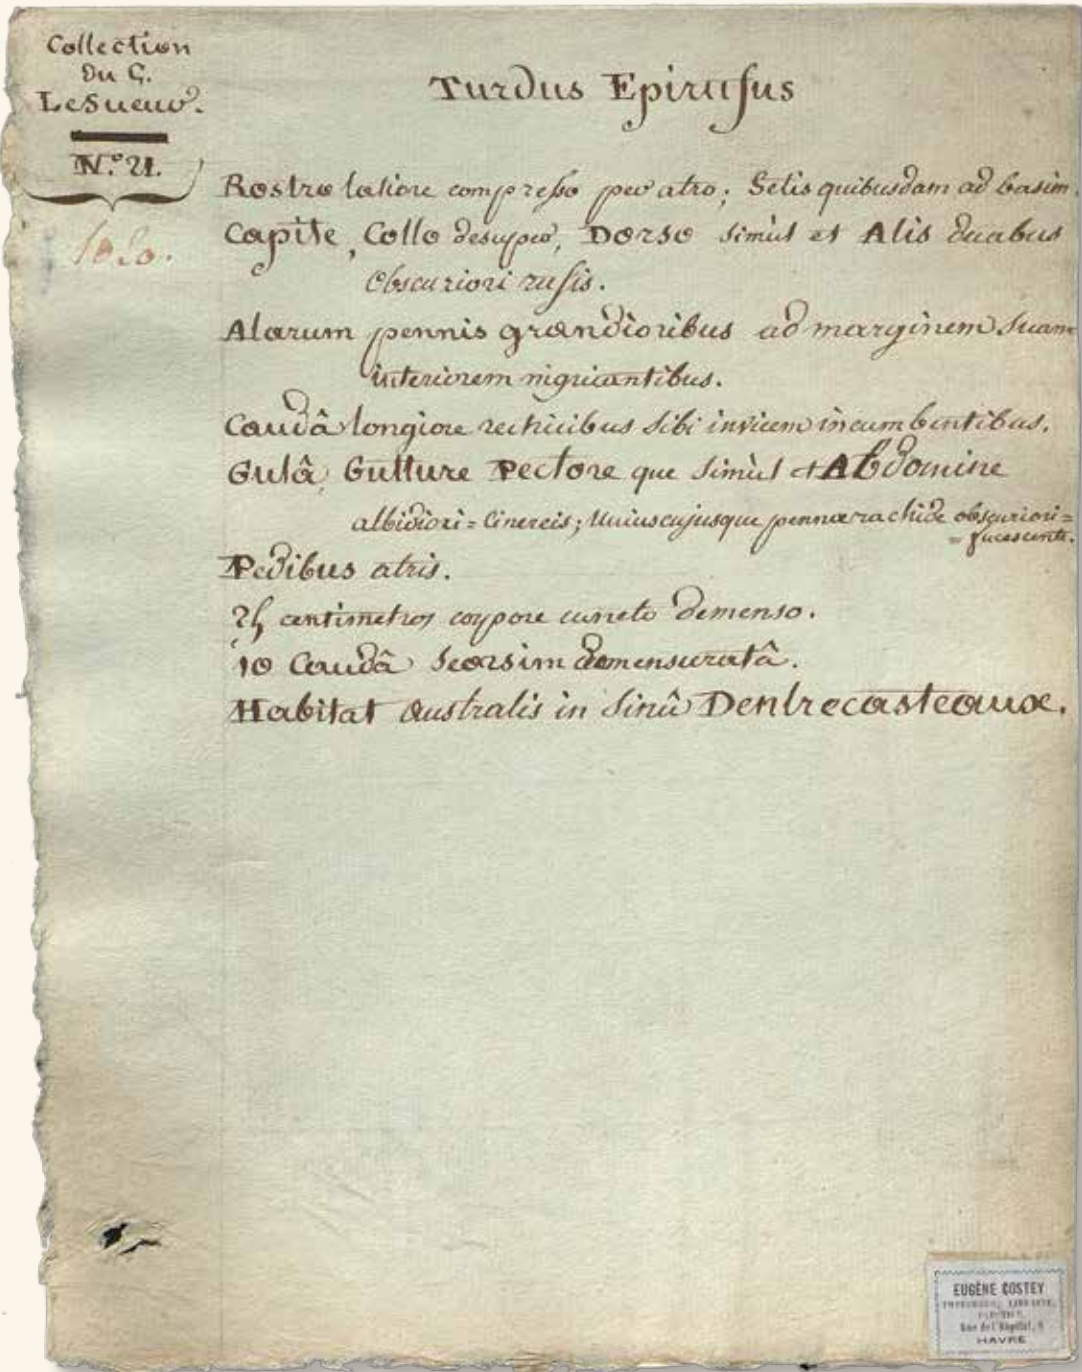 Collection
du C.
LeSueur.
N.° 21.
Turdus Epirufus
Rostro latiore compresso per atro; Setis quibusdam ad basim.
Capite, Collo desuper, Dorso simùl et Alis duabus
obscuriori rufis.
Alarum pennis grandioribus ad marginem suam
interiorem nigricantibus.
Caudâ longiore rectricibus sibi invicem incumbentibus.
Gulâ, Gutture Pectore que simùl et Abdomine
albidiori = Cinereis; Uniuscujusque pennæ rachide obscuriori =
= fucescente.
Pedibus atris.
centimetros corpore cuncto demenso.
10 Caudâ Seorsim demensuratâ.
Habitat australis in Sinû Dentrecasteaux.
EUGÈNE COSTEY
IMPRIMEUR, LIBRAIRE,
Rue de l'Hôpital,
HAVRE